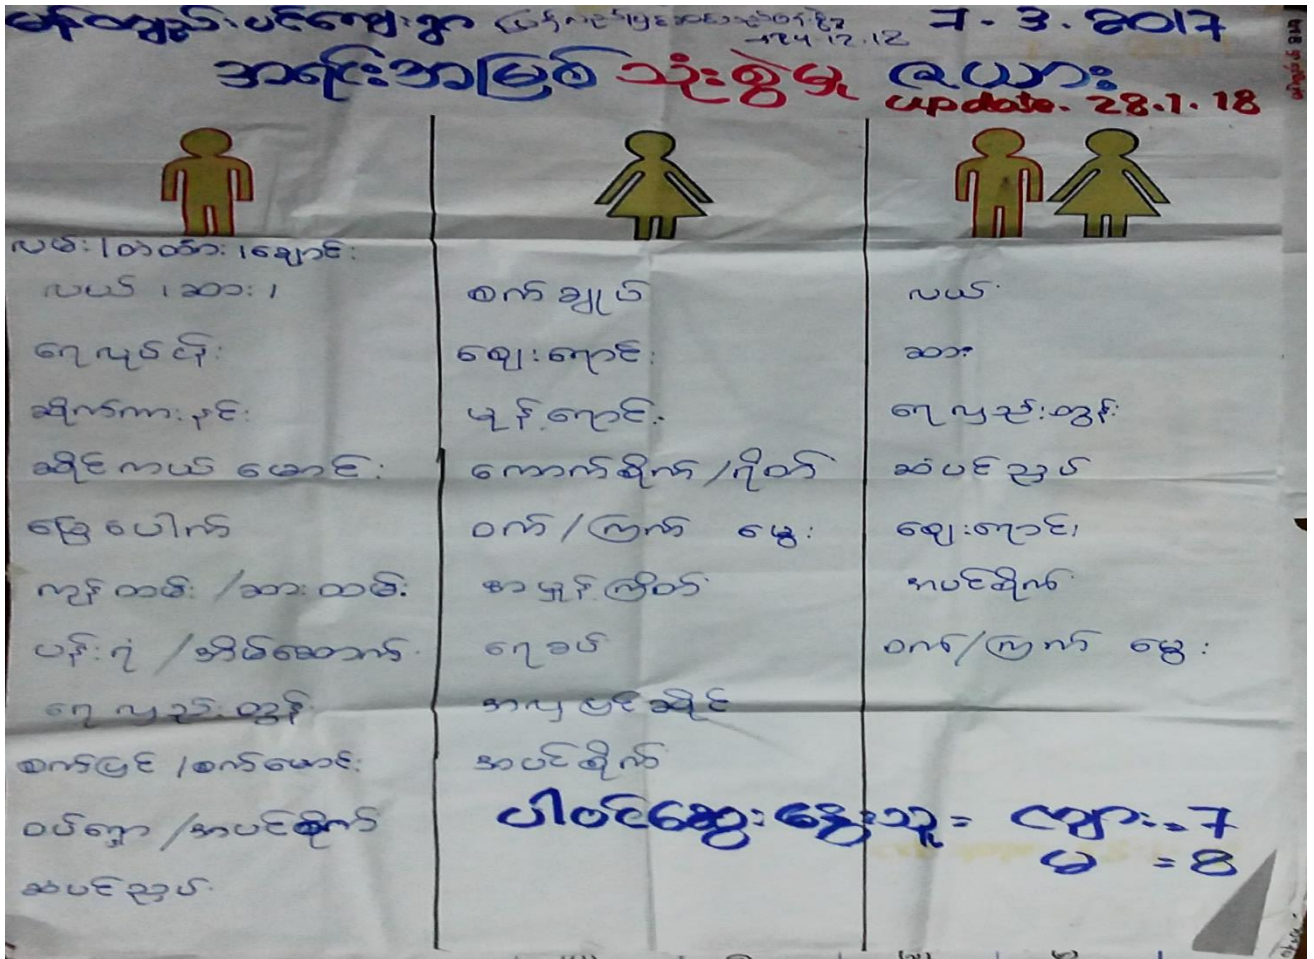 7.3.2017
အရင်းအမြစ် သုံးစွဲမှု ဇယား
update. 28.1.18
လမ်း၊တံတား၊ချောင်း
လယ် ၊ဆား၊
စက်ချုပ်
လယ်
ရေလုပ်ငန်း
ဈေးရောင်း
ဆား
ဆိုက်ကားနင်း
မုန့်ရောင်း
ရေလှည်းတွန်း
ဆိုင်ကယ် မောင်း
ကောက်စိုက်/ရိတ်
ဆံပင်ညှပ်
မြွေပေါက်
ဝက်/ကြက် မွေး
ဈေးရောင်း
ကျွန်းထမ်း/ဆားထမ်း
အမှုန့်ကြိတ်
အပင်စိုက်
ပန်းရံ/အိမ်ဆောက်
ရေခပ်
ဝက်/ကြက် မွေး
ရေလှည်းတွန်း
အလှပြင်ဆိုင်
စက်ပြင်/စက်မောင်း
အပင်စိုက်
ဝပ်ရှော့/အပင်စိုက်
ပါဝင်ဆွေးနွေးသူ = ကျား = 7
မ = 8
ဆံပင်ညှပ်